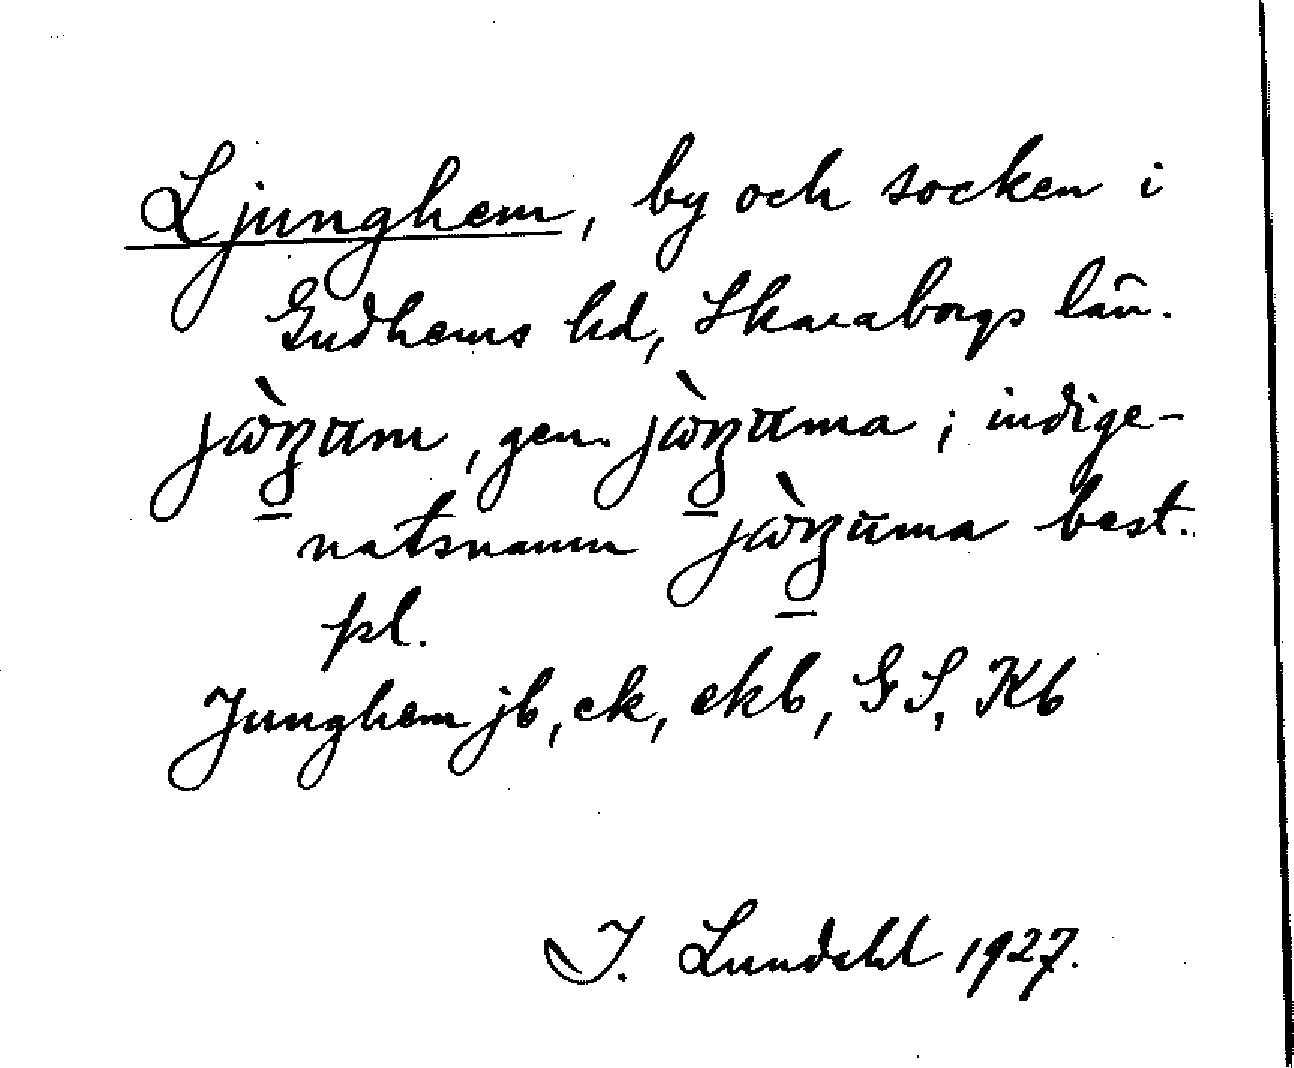 Ljunghem, by och socken i
Gudhems hd, Skaraborgs län.
gen. ; indige-
natsnamn best.
pl.
Junghem jb, ek, ekb, GS, Kb
I. Lundahl 1927.